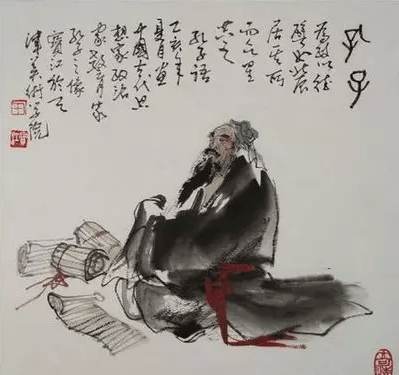 孔子
為政以德
譬如北辰
居其所
而众星
共之
孔子语
乙亥年
夏月画
中國古代思
想家政治
家教育家
孔子之像
寶江於天
津美術学院